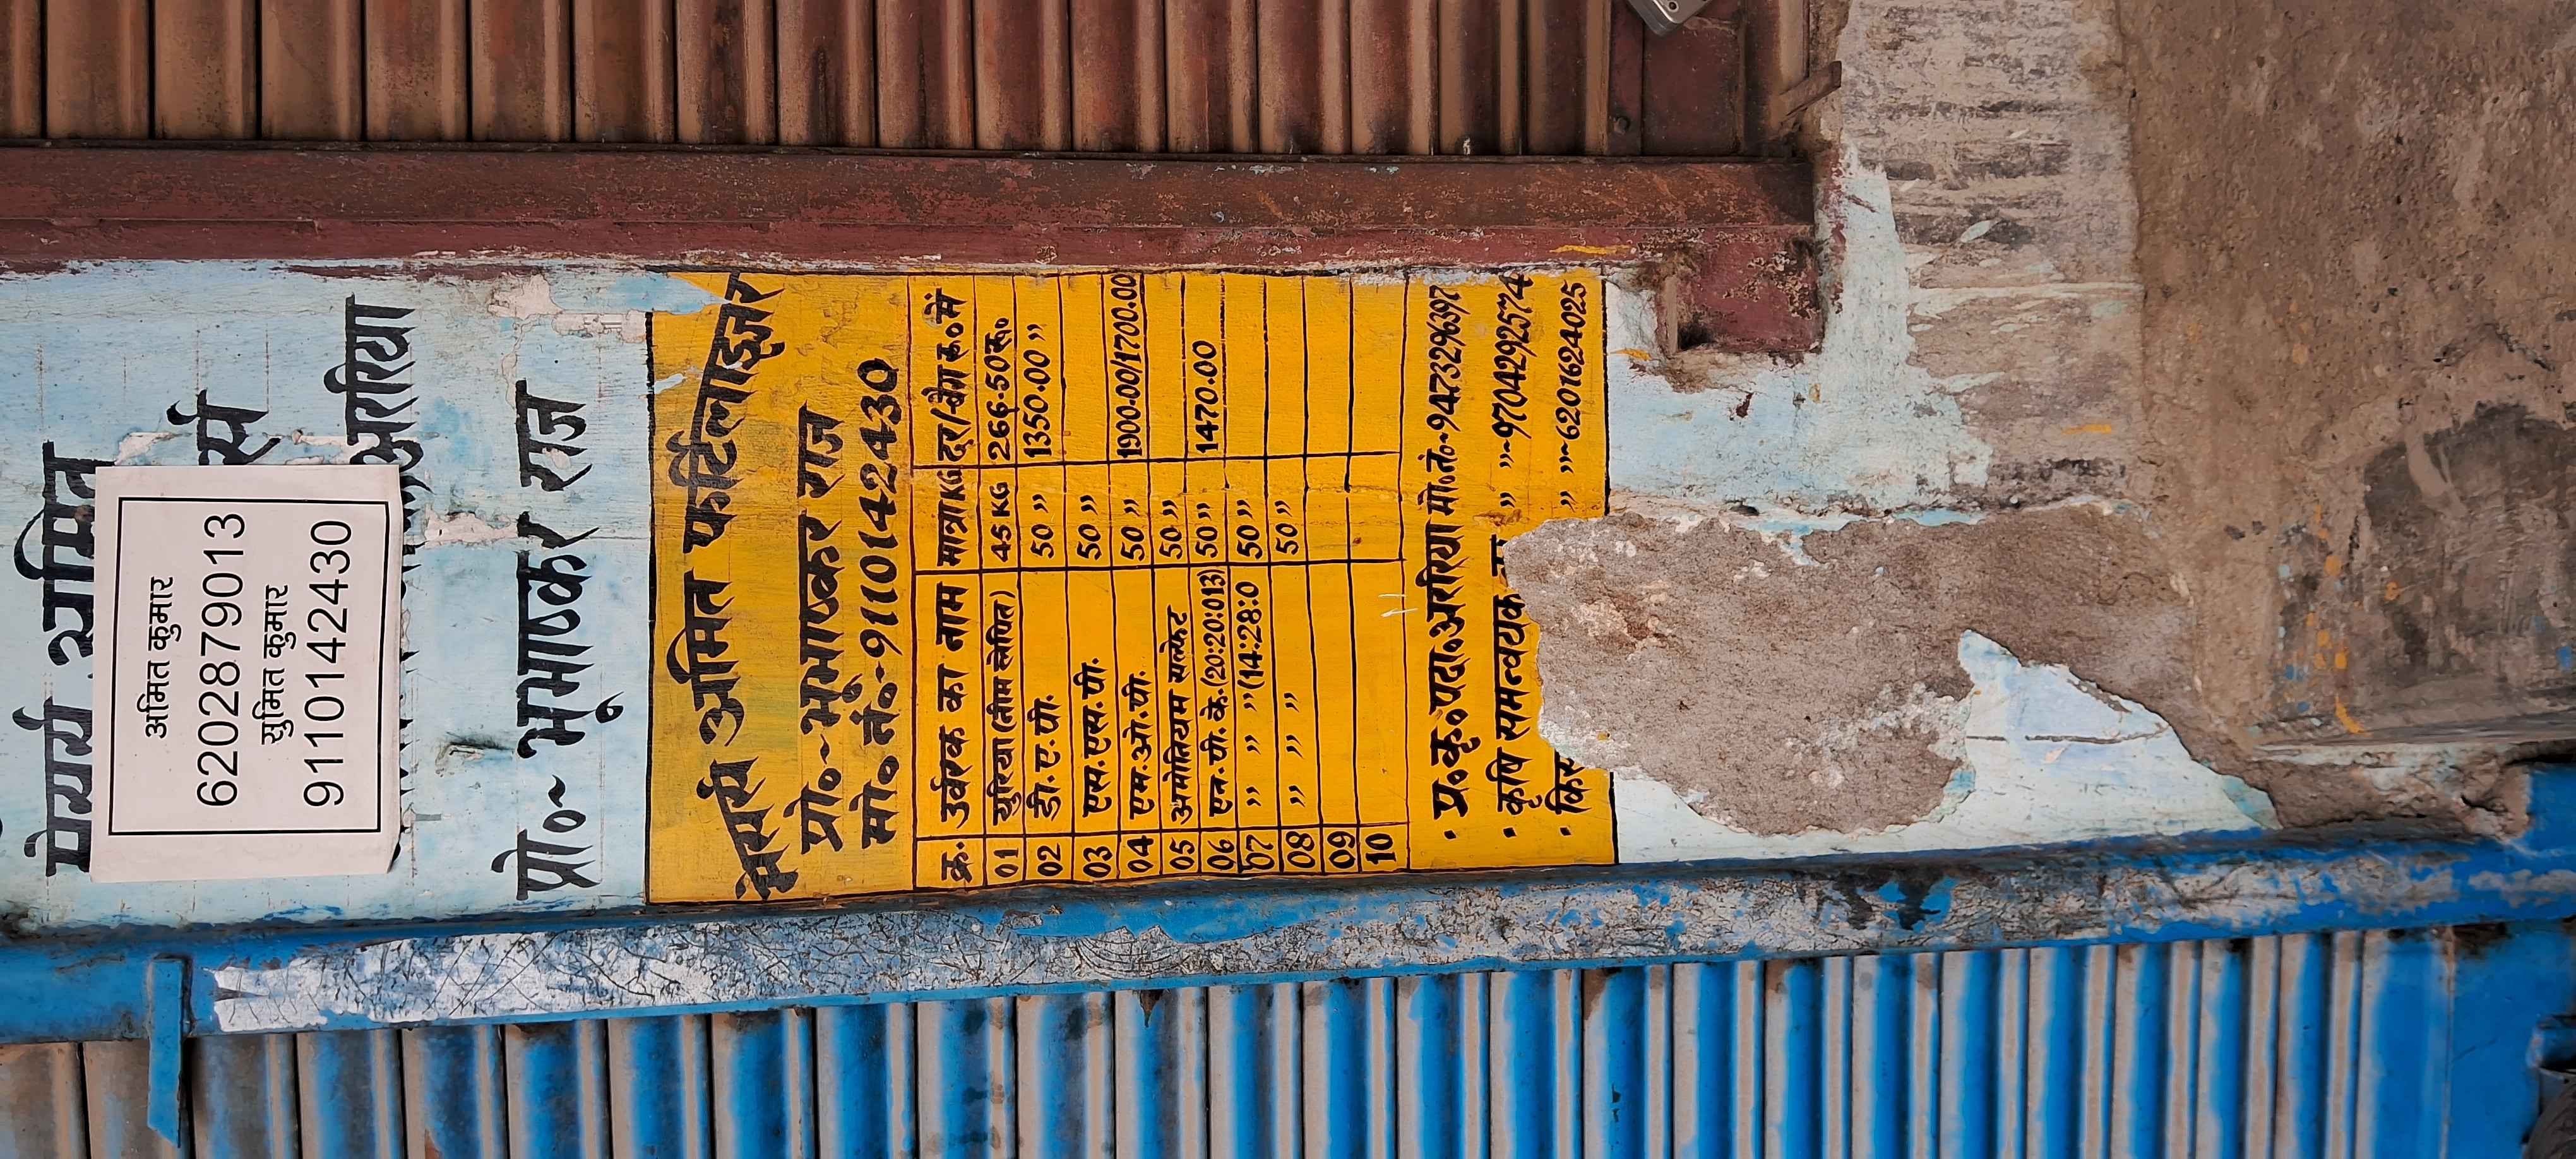 मेसर्स अमित
र्स
अररिया
प्रो०~ भूभाष्कर राज
अमित कुमार
6202879013
सुमित कुमार
9110142430
मेसर्स अमित फर्टिलाइजर
प्रो०~भूभाष्कर राज
मो० नं०~9110142430
क्र. उर्वरक का नाम मात्रा KG दर/-बैग रू० में
01 युरिया (नीम लेपित) 45 KG 266-50रू०
02 डी.ए.पी. 50 ,, 1350.00 ,,
03 एस.एस.पी. 50 ,,
04 एम.ओ.पी. 50 ,, 1900.00/1700.00
05 अमोनियम सल्फेट 50 ,,
06 एन.पी. के.(20:20:013) 50 ,, 1470.00
07 ,, ,, ,, (14:28:0 50 ,,
08 ,, ,, ,, 50 ,,
09
10
• प्र०कृ०पदा०अररिया मो०नं०~9473296397
• कृषि समन्वयक ,, ,,~9704292574
• ,, ,,~6201624025